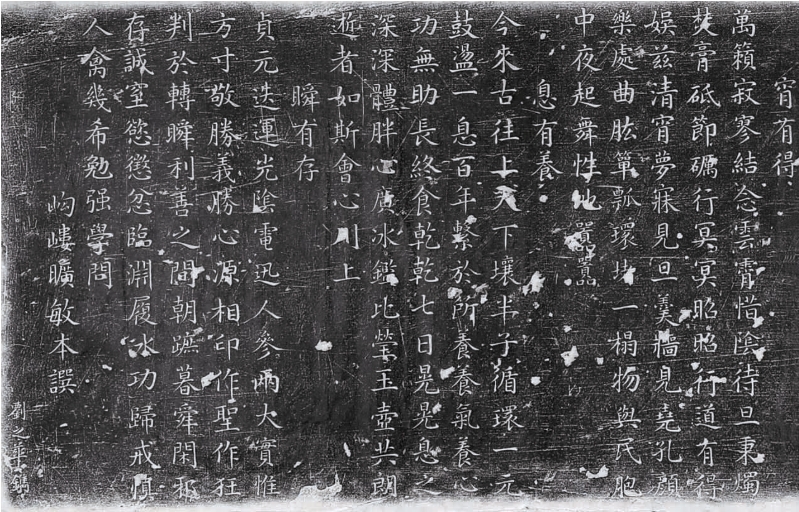 宵有得
萬籟寂寥結念雲霄惜陰待旦秉燭
焚膏砥節礪行冥冥昭昭行道有得
娛茲清宵夢寐見旦羹牆見堯孔顏
樂處曲肱簞瓢環堵一榻物與民胞
中夜起舞性地囂囂
息有養
今來古往上天下壤半子循環一元
鼓盪一息百年繫於所養養氣養心
功無助長終食乾乾七日晃晃息之
深深體胖心廣冰鑑比瑩玉壺共朗
逝者如斯會心川上
瞬有存
貞元迭運光陰電迅人參兩大實惟
方寸敬勝義勝心源相印作聖作狂
判於轉瞬利善之間朝蹠暮舜閑邪
存誠窒慾懲忿臨淵履冰功歸戒慎
人禽幾希勉强學問
岣嶁曠敏本譔
劉之華鐫